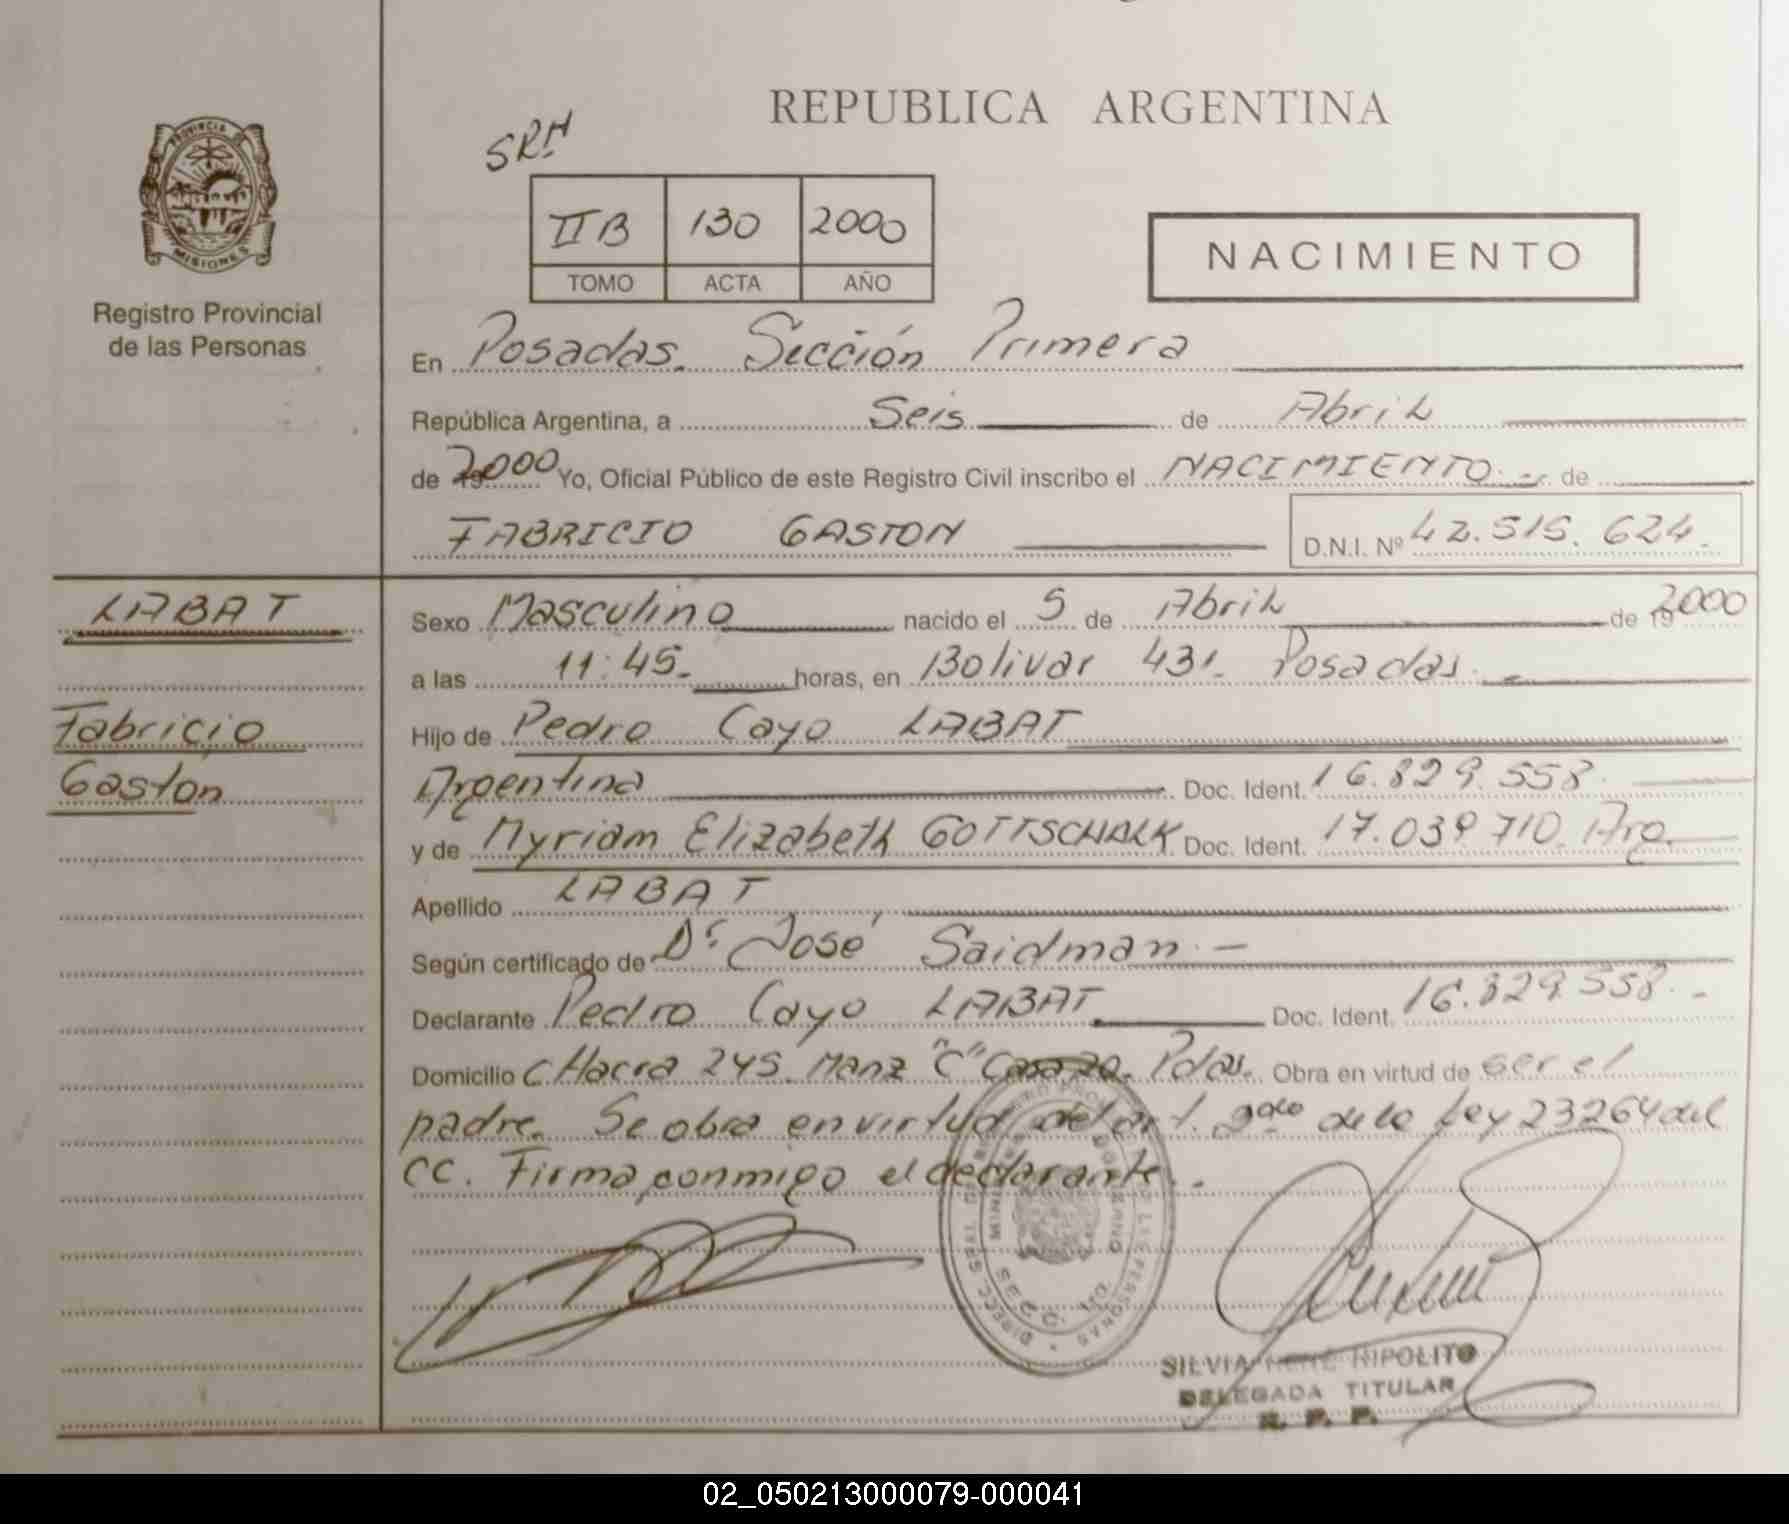 REPUBLICA ARGENTINA
SRH
PROVINCIA DE
MISIONES
Registro Provincial
de las Personas
IIB 130 2000
TOMO ACTA AÑO
NACIMIENTO
En Posadas. Sección Primera
República Argentina, a Seis de Abril
de 2000 Yo, Oficial Público de este Registro Civil inscribo el NACIMIENTO.- de
FABRICIO GASTON D.N.I. Nº 42.515.624.
LABAT
Fabricio
Gastón
Sexo Masculino nacido el 5 de Abril de 2000
a las 11:45.- horas, en Bolivar 431. Posadas.-
Hijo de Pedro Cayo LABAT
Argentina Doc. Ident. 16.829.558.
y de Myriam Elizabeth GOTTSCHALK Doc. Ident. 17.039.710. Arg.
Apellido LABAT
Según certificado de Dr José Saidman.-
Declarante Pedro Cayo LABAT Doc. Ident. 16.829.558.-
Domicilio CHacra 245. Manz "C" Casa 20. Pdas. Obra en virtud de ser el
padre. Se obra en virtud del art. 2do de la Ley 23264 del
CC. Firma conmigo el declarante..
SECC. 1ra.
SILVIA RENE RIPOLITO
DELEGADA TITULAR
R. P. P.
02_050213000079-000041